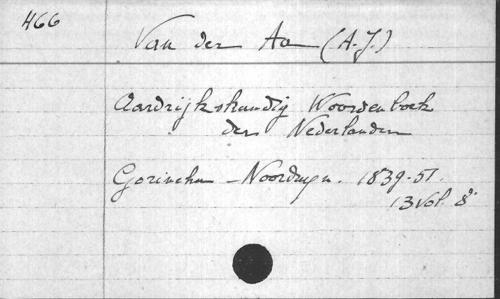 466
Van der Aa (A.J.)
Aardrijkskundig Woordenboek
der Nederlanden
Gorinchem - Noorduyn. 1839-51.
13 Vol. 8°